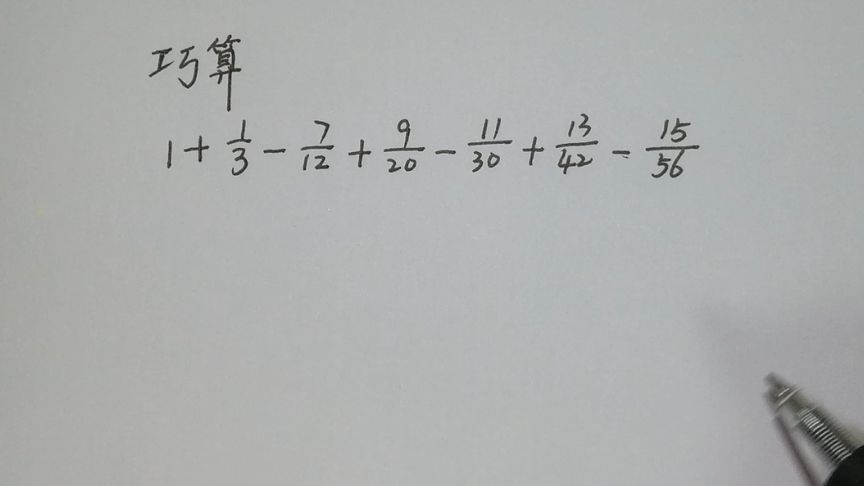 巧算
1 + 1/3 - 7/12 + 9/20 - 11/30 + 13/42 - 15/56